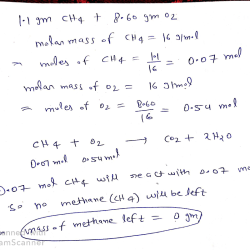 1.1 gm CH4 + 8.60 gm O2
molar mass of CH4 = 16 g/mol
∴ moles of CH4 = 1.1/16 = 0.07 mol
molar mass of O2 = 16 g/mol
∴ moles of O2 = 8.60/16 = 0.54 mol
CH4 + O2 → CO2 + 2H2O
0.07 mol 0.54 mol
0.07 mol CH4 will react with 0.07 mo
so no methane (CH4) will be left
mass of methane left = 0 gm